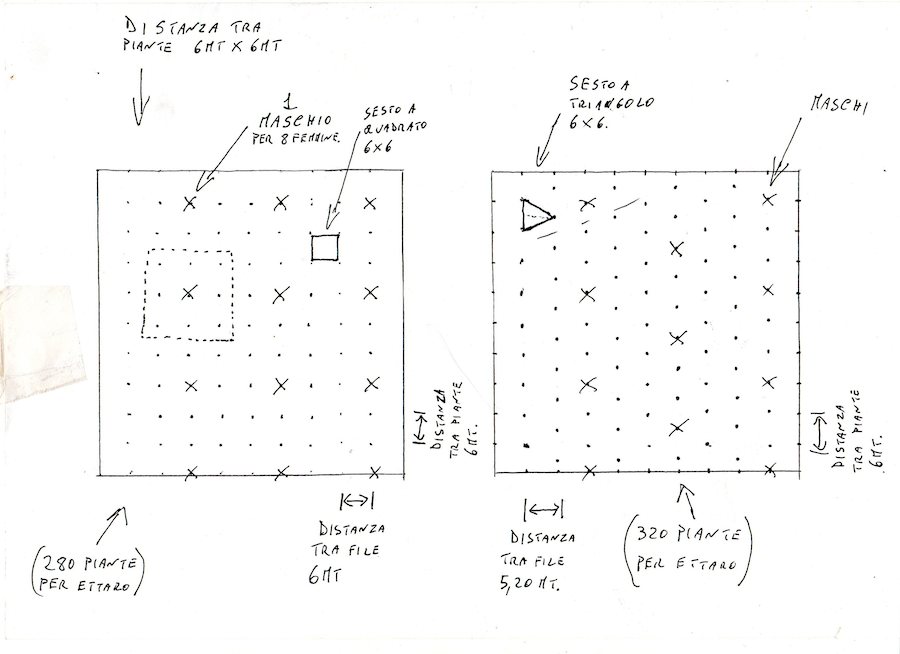 DISTANZA TRA
PIANTE 6MT X 6MT
1
MASCHIO
PER 8 FEMMINE.
SESTO A
QUADRATO
6X6
SESTO A
TRIANGOLO
6X6.
MASCHI
DISTANZA
TRA PIANTE
6MT.
DISTANZA
TRA PIANTE
6MT.
(280 PIANTE
PER ETTARO)
DISTANZA
TRA FILE
6MT
DISTANZA
TRA FILE
5,20 MT.
(320 PIANTE
PER ETTARO)